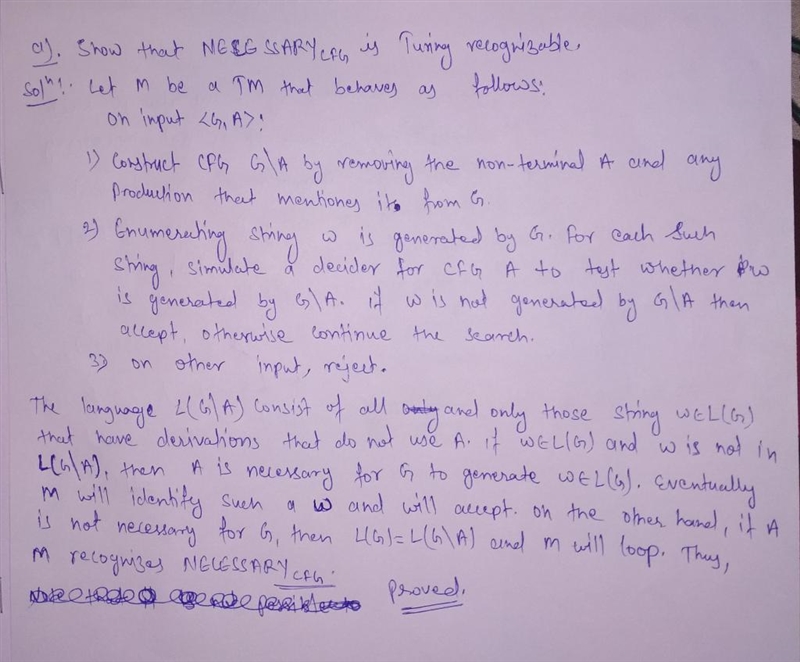 a). Show that NECESSARY CFG is Turing recognizable.
Solⁿ: Let M be a TM that behaves as follows:
On input <G, A>:
1) Construct CFG G\A by removing the non-terminal A and any
Production that mentiones it from G.
2) Enumerating string w is generated by G. For each such
string, simulate a decider for CFG A to test whether w
is generated by G\A. if w is not generated by G\A then
accept, otherwise continue the search.
3) on other input, reject.
The language L(G\A) consist of all only and only those string w∈L(G)
that have derivations that do not use A. if w∈L(G) and w is not in
L(G\A), then A is necessary for G to generate w∈L(G). Eventually
M will identify such a w and will accept. on the other hand, if A
is not necessary for G, then L(G)=L(G\A) and M will loop. Thus,
M recognizes NECESSARY CFG.
Proved.